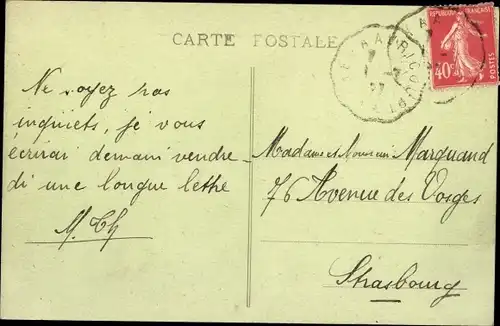 CARTE POSTALE
REPUBLIQUE FRANÇAISE
40c
POSTES
Ne soyez pas
inquiets, je vous
écrirai demain vendre-
di une longue lettre
M. Th
Madame et Monsieur Marquand
76 Avenue des Vosges
Strasbourg